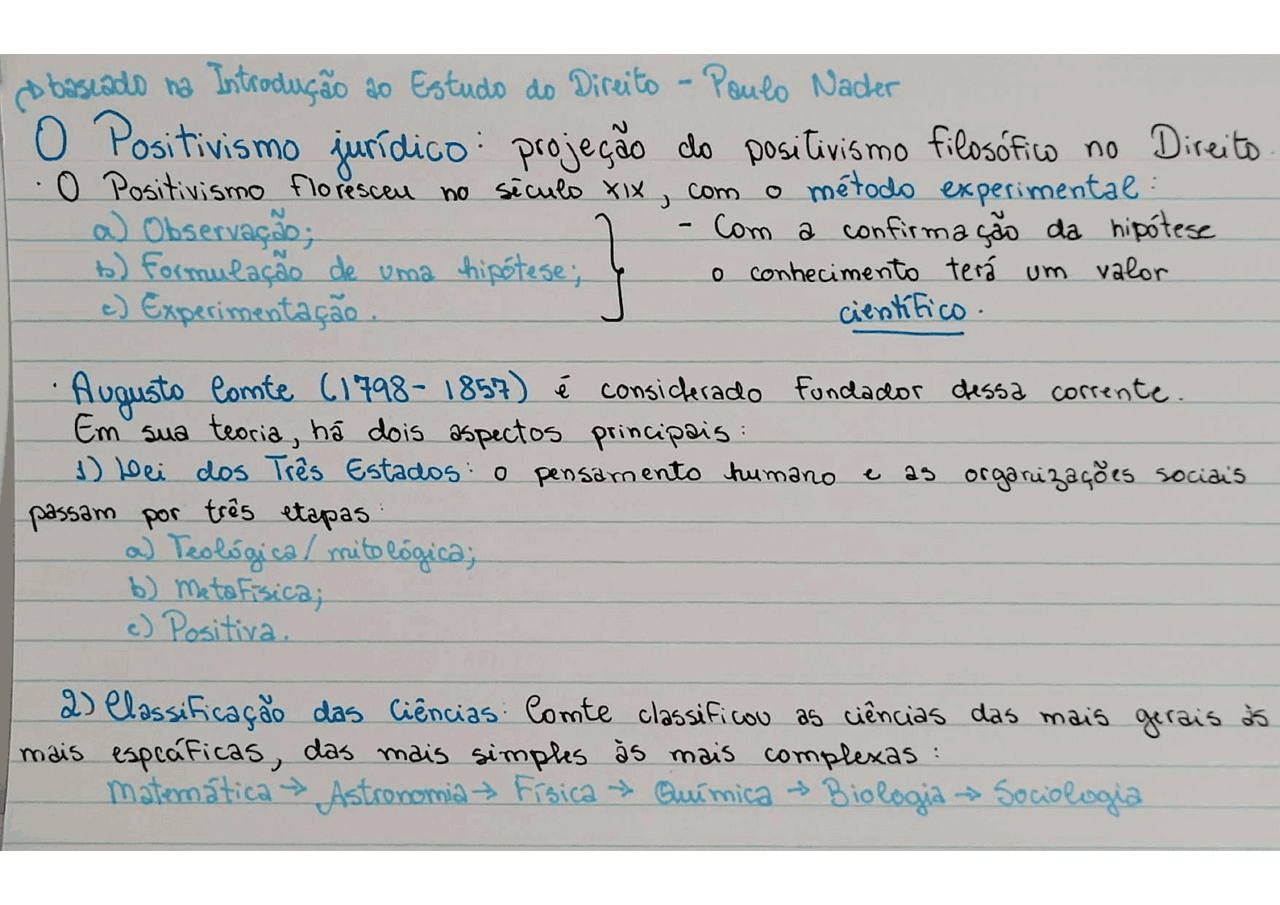 ↳ baseado na Introdução ao Estudo do Direito - Paulo Nader
O Positivismo jurídico: projeção do positivismo filosófico no Direito.
· O Positivismo floresceu no século XIX, com o método experimental:
a) Observação; - Com a confirmação da hipótese
b) Formulação de uma hipótese; o conhecimento terá um valor
c) Experimentação. científico.
· Augusto Comte (1798-1857) é considerado fundador dessa corrente.
Em sua teoria, há dois aspectos principais:
1) Lei dos Três Estados: o pensamento humano e as organizações sociais
passam por três etapas:
a) Teológica/mitológica;
b) Metafísica;
c) Positiva.
2) Classificação das Ciências: Comte classificou as ciências das mais gerais às
mais espcáficas, das mais simples às mais complexas:
Matemática → Astronomia → Física → Química → Biologia → Sociologia